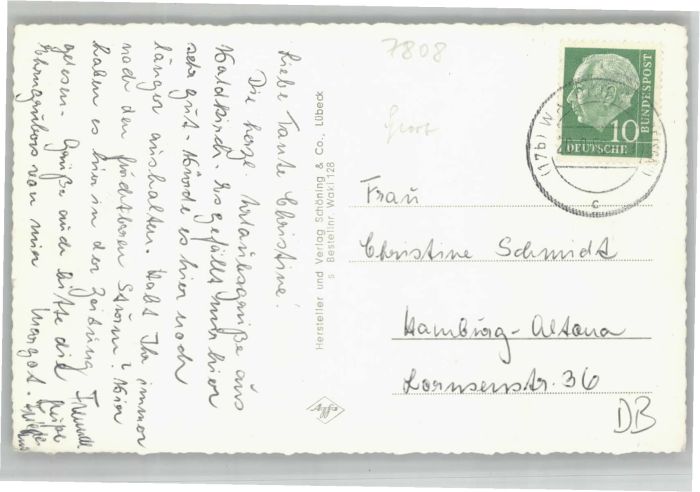 Liebe Tante Christine!
Die herzl. Urlaubsgrüße aus
Waldkirch. Es gefällt mir hier
sehr gut. Würde es hier noch
länger aushalten. Habt Ihr immer
noch den furchtbaren Sturm? Wir
haben es hier in der Zeitung
gelesen. Grüße auch bitte die
von mir Margot.
Hersteller und Verlag Schöning & Co., Lübeck
s Bestellnr. Wakl 128
7808
10
DEUTSCHE
BUNDESPOST
(17b)
c
Frau
Christine Schmidt
Hamburg-Altona
Lornsenstr. 36
DB
Agfa